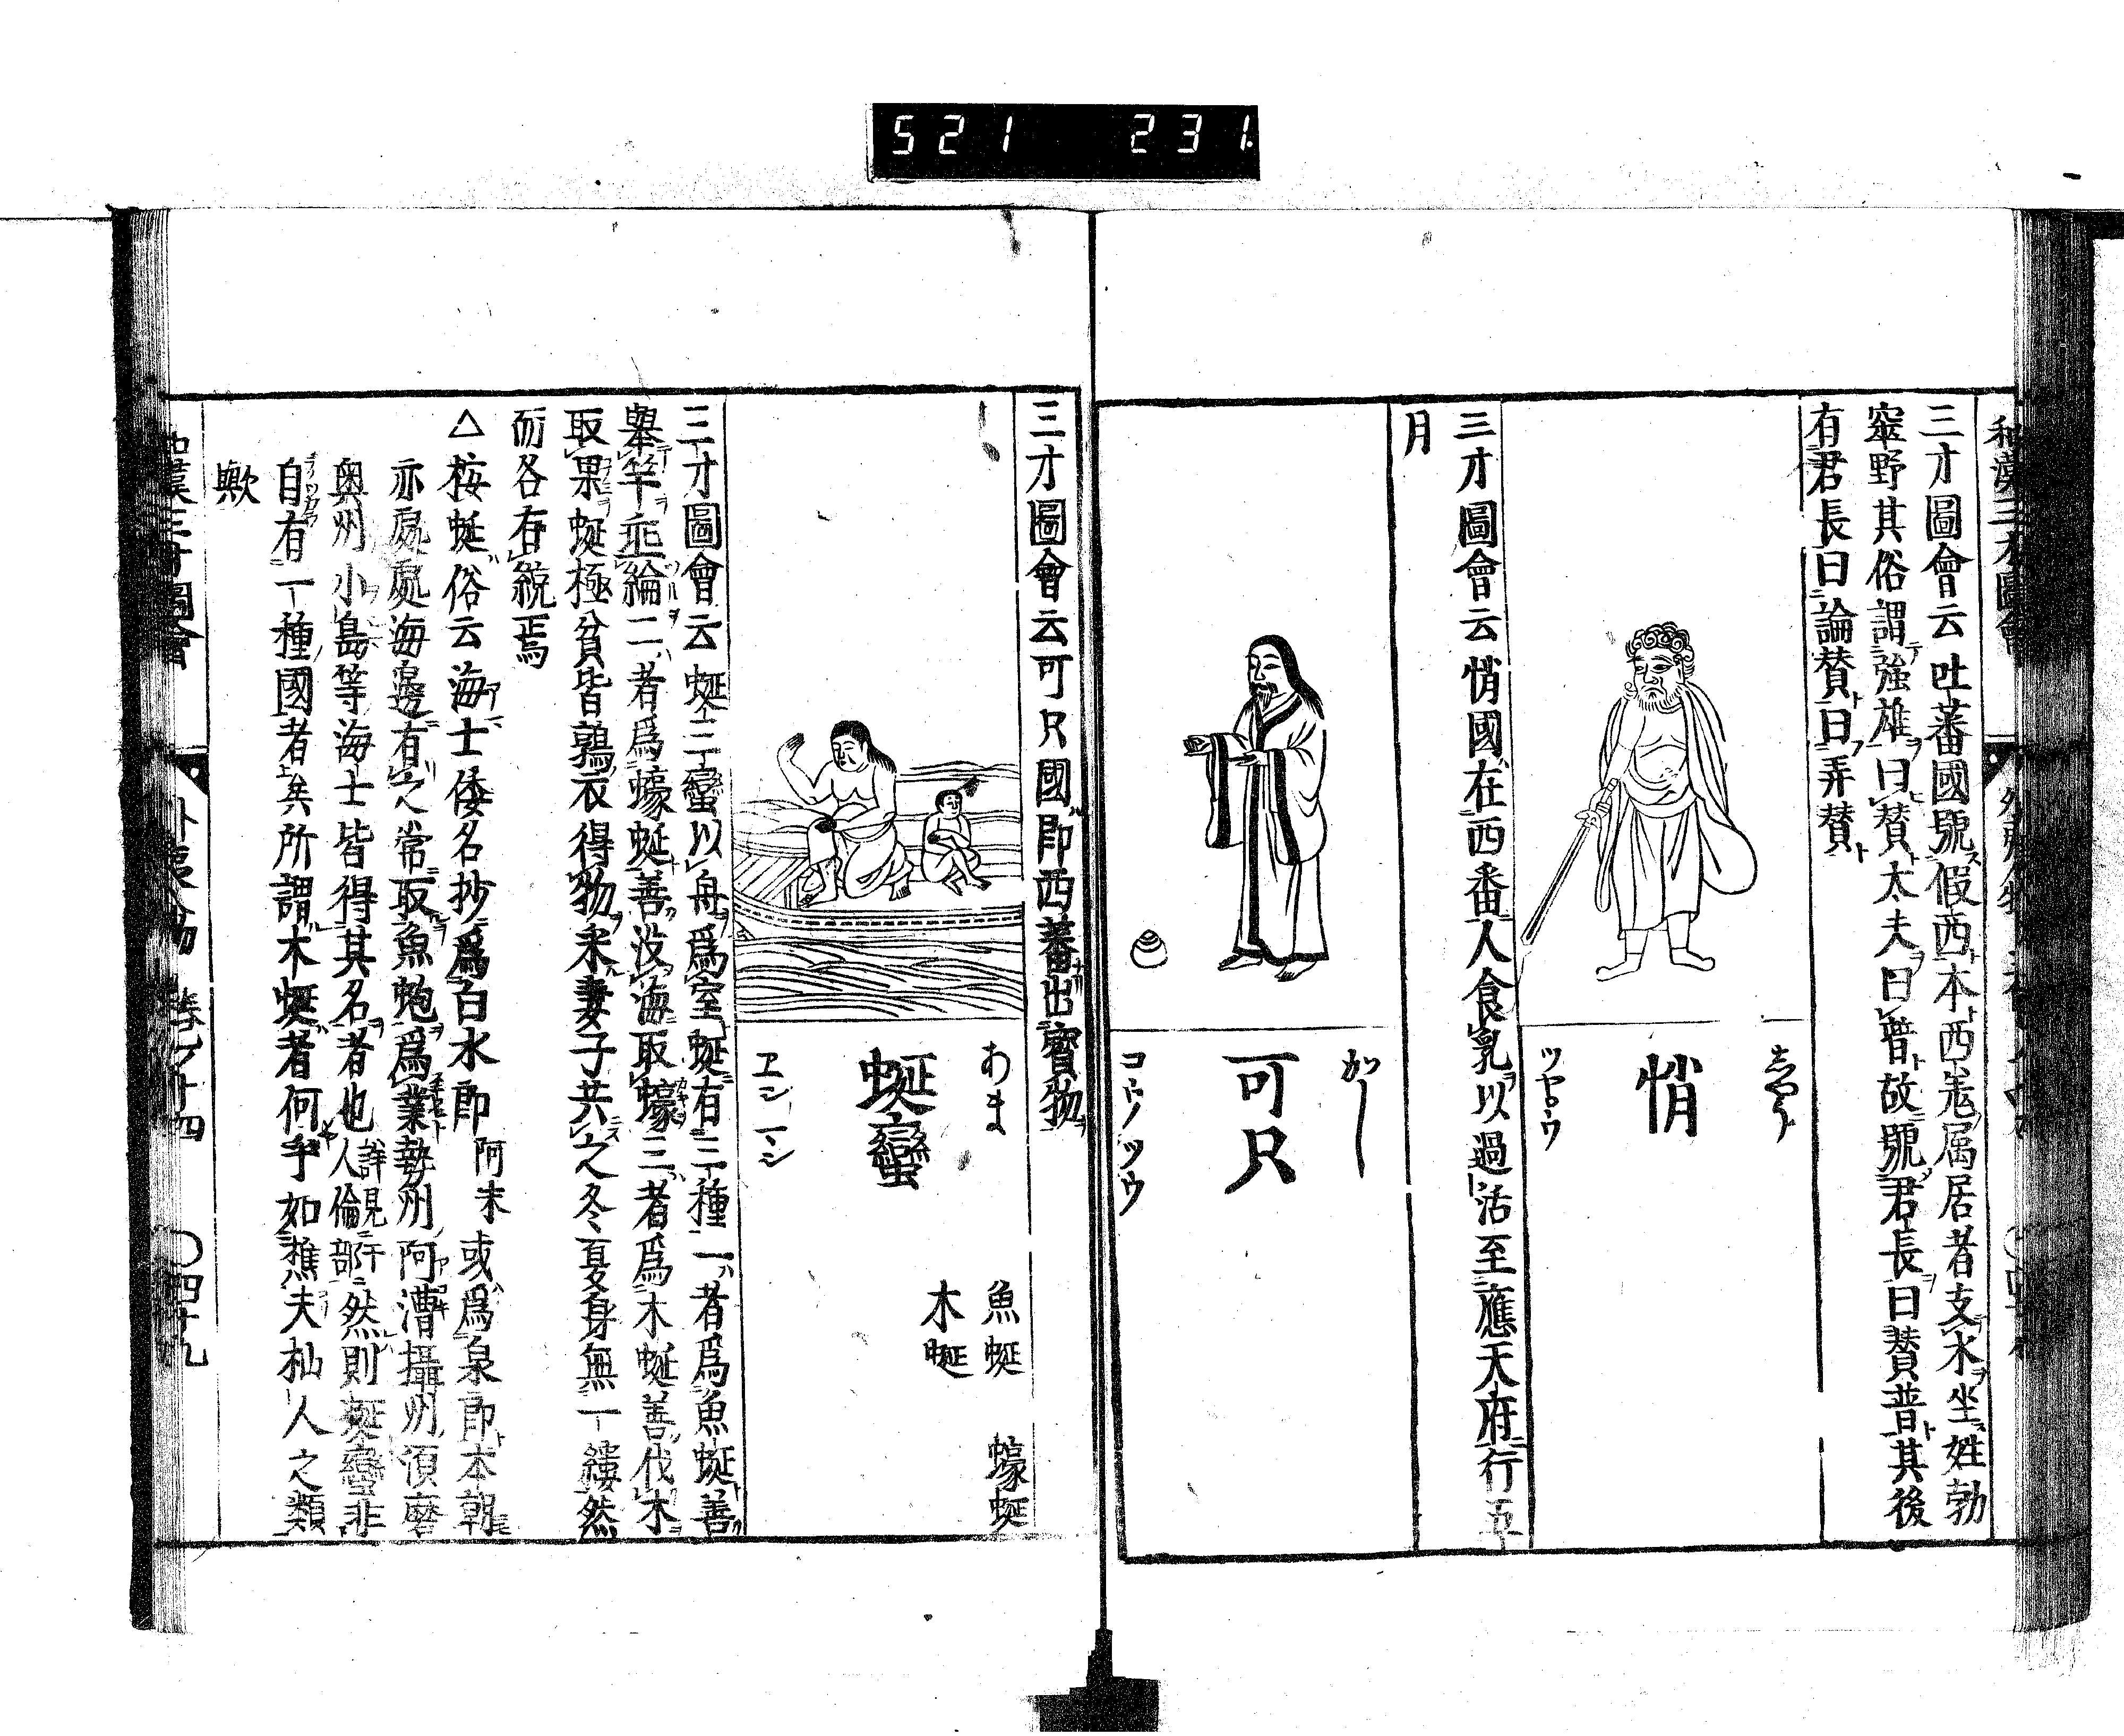 521 231
三才圖會云吐蕃國號假西本西羌属居者支水坐姓勃
窣野其俗謂強雄曰賛太夫曰普故號君長曰賛普其後
有君長曰論賛曰弄賛
悄
ツヤ゜ウ
三才圖會云悄國在西番人食乳以過活至應天府行五
月
かつし
可只
コウノツウ
三才圖會云可只國即西蕃出寳物
あま
蜒蠻
ヱン マン
魚蜒 蠔蜒
木蜒
三才圖會云蜒三蠻以舟爲室蜒有三種一者爲魚蜒善
舉竿垂綸二者爲蠔蜒善没海取蠔三者爲木蜒善伐木
取果蜒極貧皆鶉衣得物釆妻子共之冬夏身無一縷然
而各有統焉
△桉蜒俗云海士倭名抄爲白水郎阿末或爲泉郎本朝
亦處處海邊有之常取魚鮑爲業勢州阿漕攝州須磨
奥州小島等海士皆得其名者也詳見于人倫部然則蜒蠻非
自有一種國者矣所謂木蜒者何乎如樵夫杣人之類
歟
和漢三才圖會 外夷人物 卷之十四 〇四十九